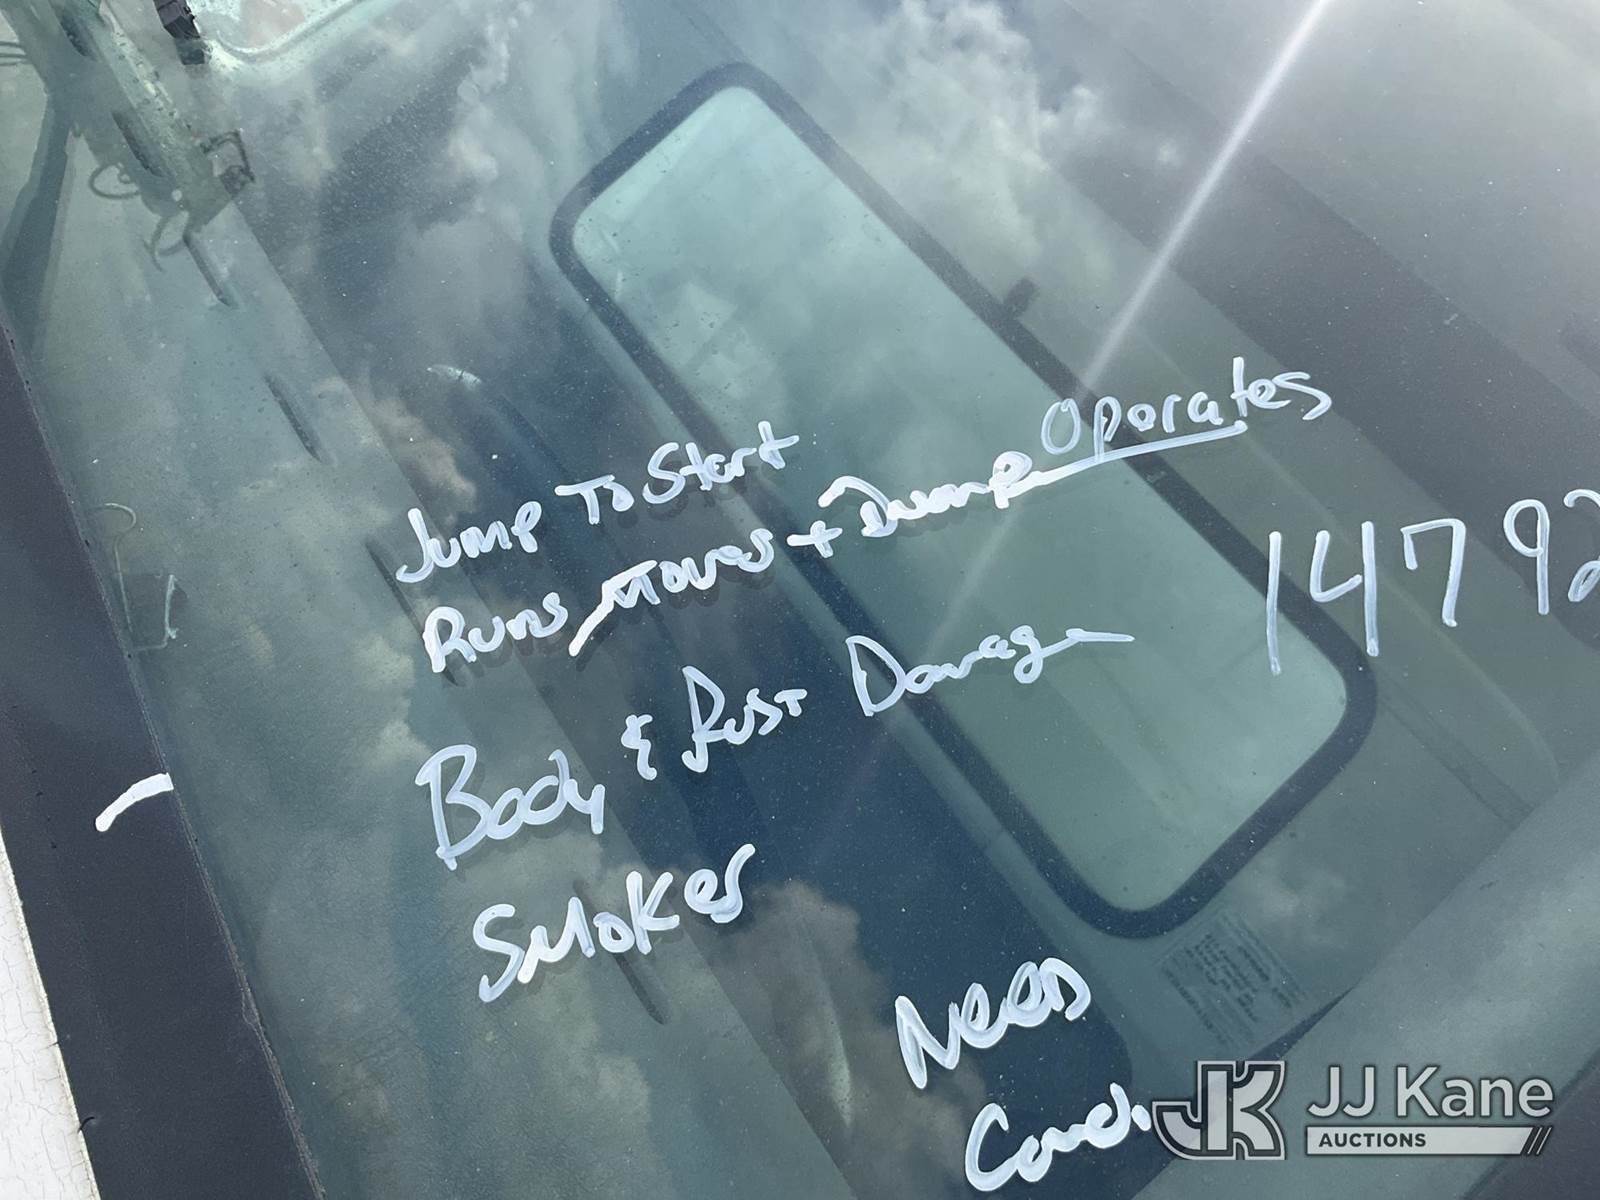 Jump To Start
Runs Moves + Dump Operates
14792
Body & Rust Damage
Smoker
Needs
Cond.
JK JJ Kane
AUCTIONS